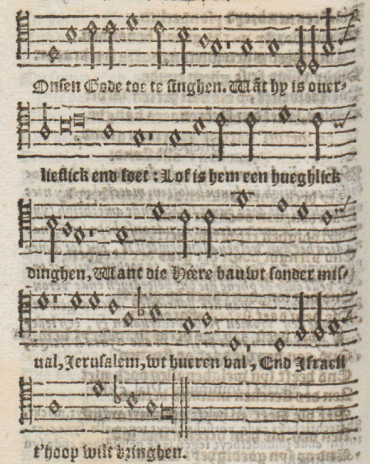 Onsen Gode toe te singhen. Wãt hy is ouer-
lieflick end soet : Lof is hem een hueghlick
dinghen, Want die Heere bauwt sonder mis-
ual, Jerusalem, wt hueren val, End Israell
t'hoop wilt bringhen.